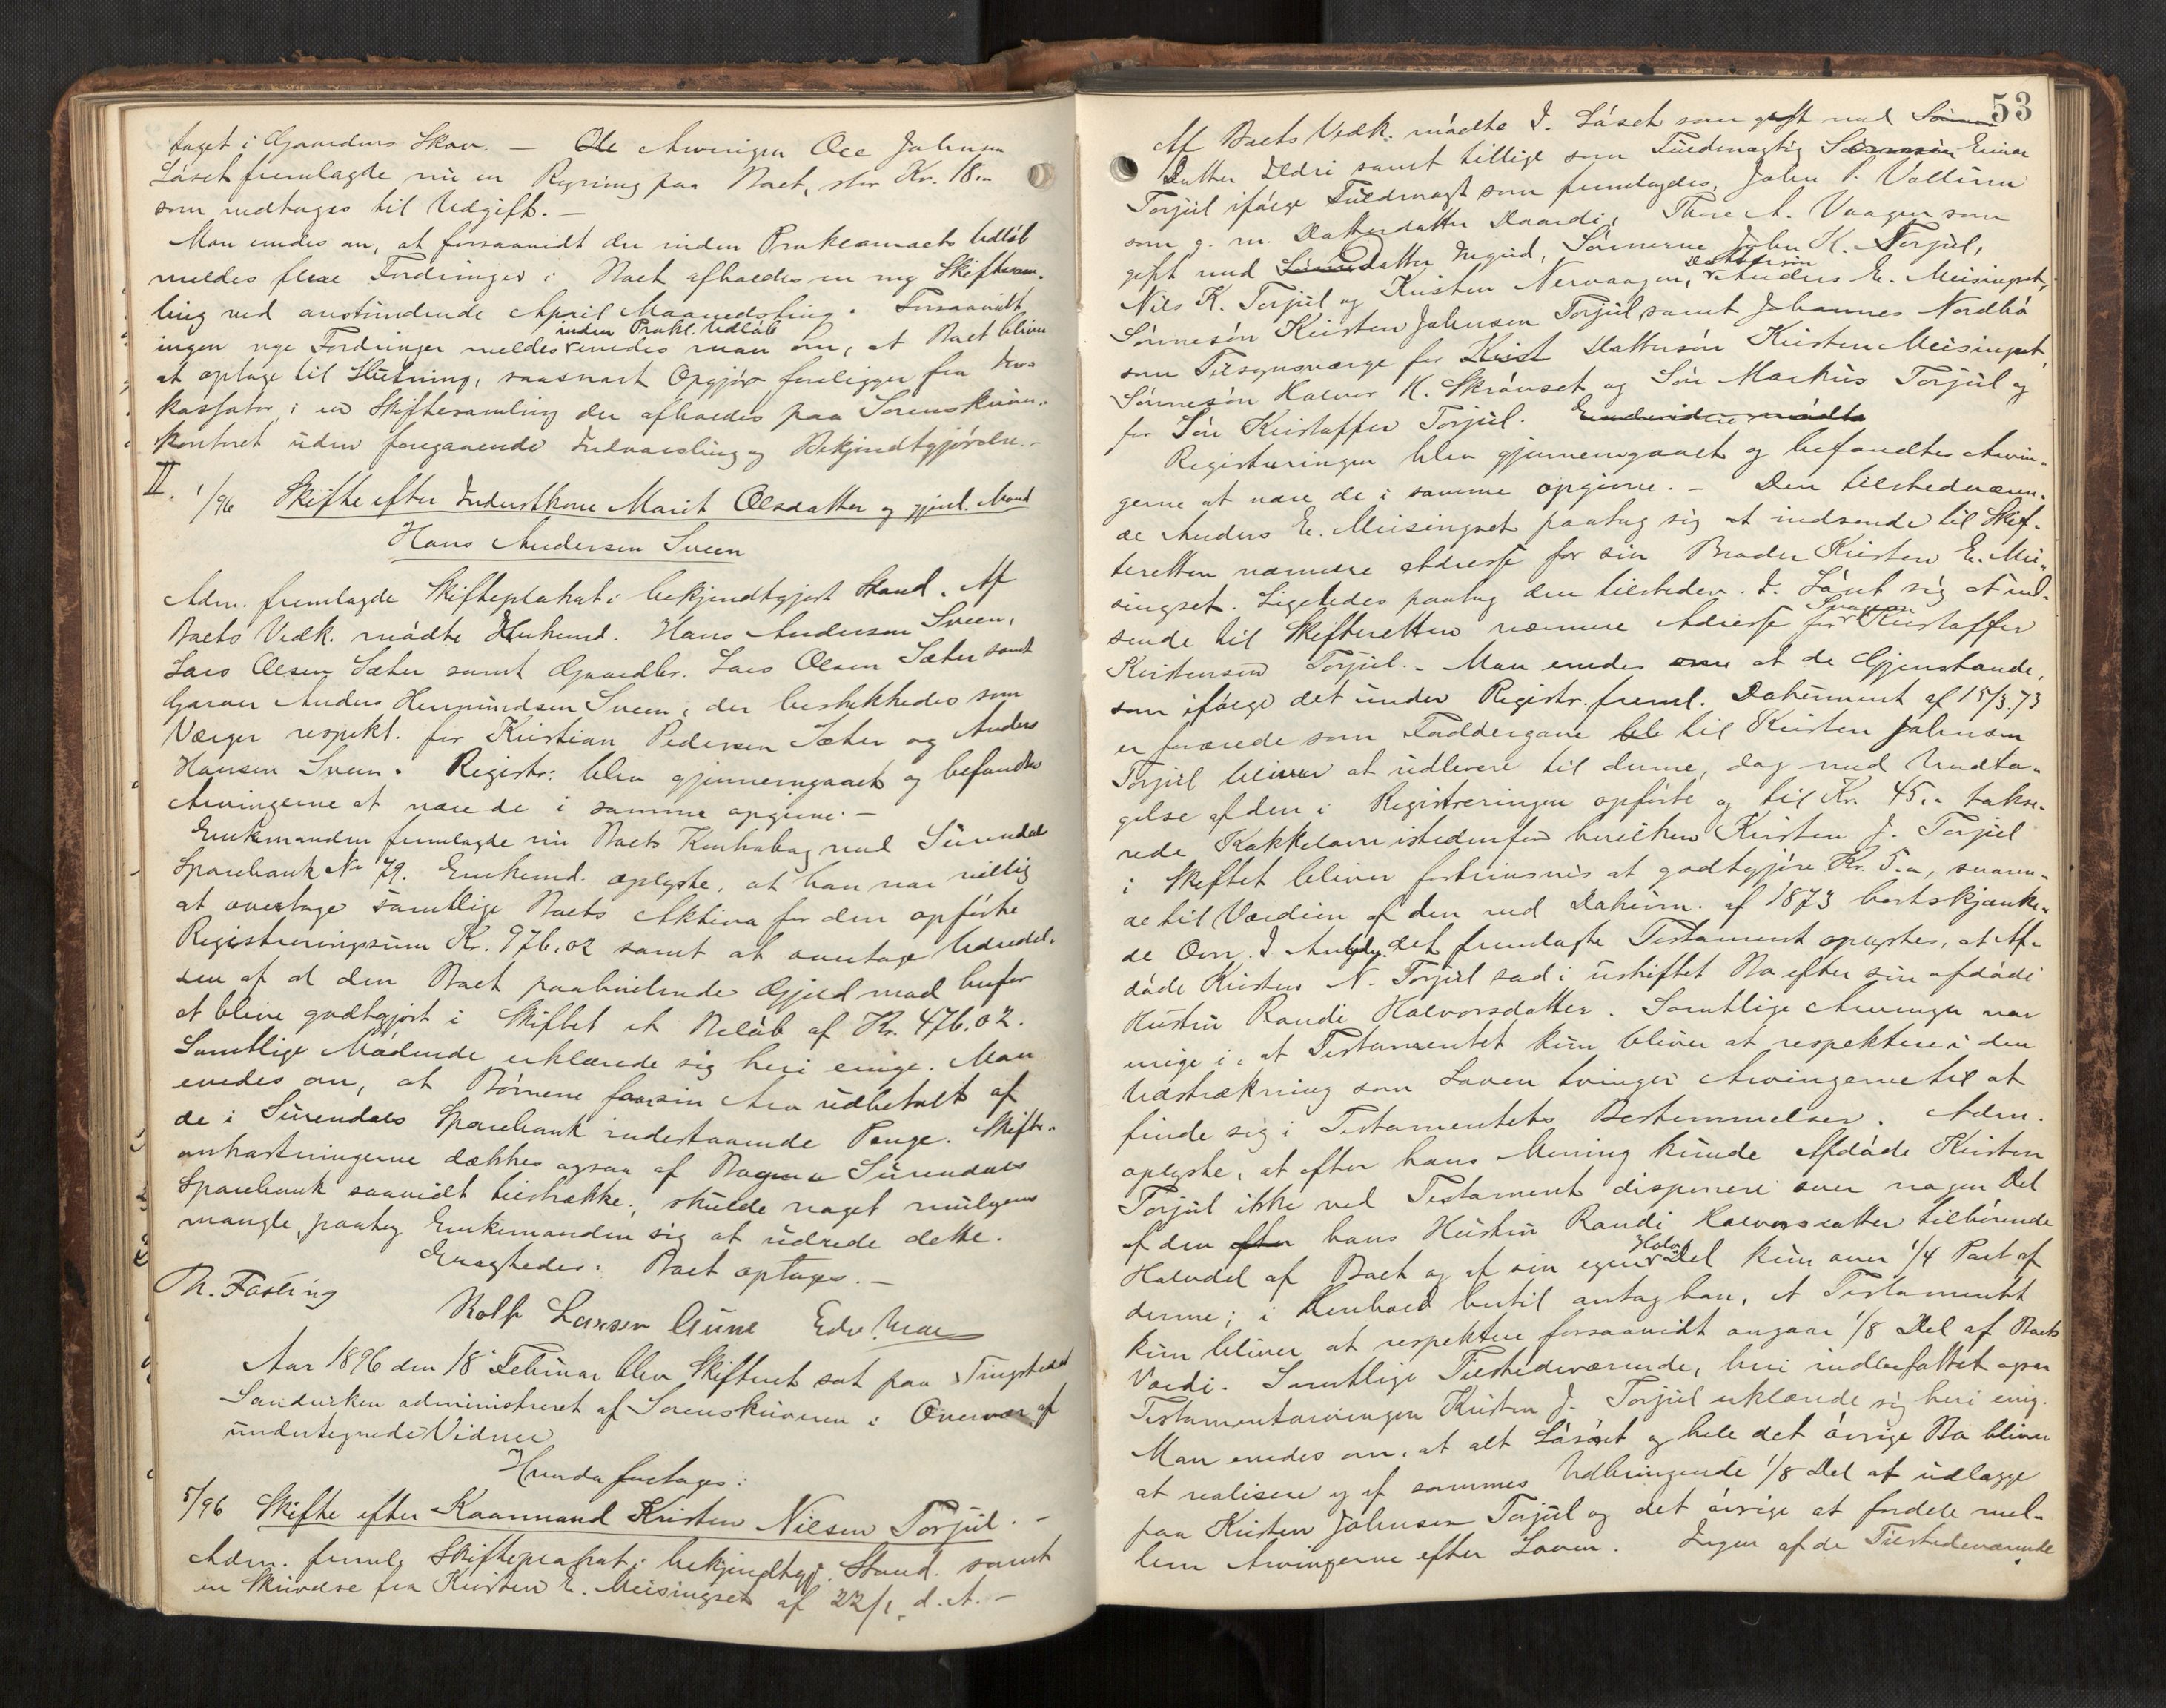 taget i Gaardens Skov. — Ole Arvingen Ole Johnsen
Løset fremlagde nu en Regning paa Boet, stor Kr. 18.-
som medtages til Udgift. —
Man enedes om, at forsaavidt der inden Proklamaets Udløb
meldes flere Fordringer i Boet afholdes en ny Skiftesam-
ling ved anstundende April Maanedsting. Forsaavidt
inden Prokl. Udløb
ingen nye Fordringer meldes enedes man om, at Boet bliver
at optage til Slutning, saasnart Opgjør foreligger fra Ink-
kassator, i en Skiftesamling der afholdes paa Sorenskriver-
kontoret uden foregaaende Indvarsling og Bekjendtgjørelse.-
II. 1/96 Skifte efter Inderstkone Marit Olsdatter og gjenl. Mand
Hans Andersen Sveen
Adm. fremlagde Skifteplakat i bekjendtgjort Stand. Af
Boets Vedk. mødte Enkemd. Hans Andersen Sveen,
Lars Olsen Sæter samt Gaardbr. Lars Olsen Sæter samt
Garver Anders Hermundsen Sveen, der beskikkedes som
Værger respekt. for Kristian Pedersen Sæter og Anders
Hansen Sveen. Registr: blev gjennemgaaet og befandtes
Arvingerne at være de i samme opgivne. —
Enkemanden fremlagde nu Boets Kontrabog med Surendal
Sparebank No 79. Enkemd. oplyste, at han var villig
at overtage samtlige Boets Aktiva for den opførte
Registreringssum Kr. 976.02 samt at overtage Udredel-
sen af al den Boet paahvilende Gjæld mod herfor
at blive godtgjort i Skiftet et Beløb af Kr. 476.02.
Samtlige Mødende erklærede sig heri enige. Man
enedes om, at Børnene faar sin Arv udbetalt af
de i Surendals Sparebank indestaaende Penge. Skifte-
omkostningerne dækkes ogsaa af Bogen i Surendals
Sparebank saavidt tilstrække; skulde noget muligens
mangle, paatog Enkemanden sig at udrede dette.
Enigheder. Boet optages. —
Th. Fasting
Rolf Larsen Gune Edv. Moe
Aar 1896 den 18 Februar blev Skifteret sat paa Tingstedet
Sandviken administreret af Sorenskriveren i Overvær af
undertegnede Vidner
Hvorda foretages:
5/96 Skifte efter Kaarmand Kristen Nilsen Torjul. -
Adm. fremlg. Skifteplakat i bekjendtgj. Stand. samt
en Skrivelse fra Kristen E. Meisingset af 22/1 d. A. -
53
Af Boets Vedk. mødte I. Løset som gift med Sønne
Datter Ildri samt tillige som Fuldmægtig Sønnesøn Einar
Torjul ifølge Fuldmagt som fremlagdes, John P. Vullum
som g. m. Datterdatter Baardi, Thore A. Vaagen som
gift med Sønnedatter Ingrid, Sønnerne John K. Torjul,
Dattersøn
Nils K. Torjul og Kristen Nervaagen, Anders E. Meisingset,
Sønnesøn Kristen Johnsen Torjul samt Johannes Nordbø
som Tilsynsværge for Krist Dattersøn Kristen Meisingset,
Sønnesøn Halvor K. Skrøvset og Søn Markus Torjul og
for Søn Kristoffer Torjul. Endvidere mødte
Registreringen blev gjennemgaaet og befandtes Arvin-
gerne at være de i samme opgivne. — Den tilstedeværen-
de Anders E. Meisingset paatog sig at indsende til Skif-
teretten nærmere Adresse for sin Broder Kristen E. Mei-
singset. Ligeledes paatog den tilstedev. I. Løset sig at ind-
Svoger
sende til Skifteretten nærmere Adresse for Kristoffer
Kristensen Torjul. - Man enedes om at de Gjenstande,
som ifølge det under Registr. freml. Dokument af 15/3.73
er forærede som Faddergave ble til Kristen Johnsen
Torjul bliver at udlevere til denne, dog med Undta-
gelse af den i Registreringen opførte og til Kr. 45.- takse-
rede Kakkelovn istedenfor hvilken Kristen J. Torjul
i Skiftet bliver fortrinsvis at godtgjøre Kr. 5.-, svaren-
de til Værdien af den ved Dokum. af 1873 bortskjænke-
de Ovn. I Anledn. det fremlagte Testament oplystes, at Af-
døde Kristen N. Torjul sad i uskiftet Bo efter sin afdøde
Hustru Randi Halvorsdatter. Samtlige Arvinger var
enige i, at Testamentet kun bliver at respektere i den
Udstrækning som Loven tvinger Arvingerne til at
finde sig i Testamentets Bestemmelser. Adm.
oplyste, at efter hans Mening kunde Afdøde Kristen
Torjul ikke ved Testament disponere over nogen Del
af den efter hans Hustru Randi Halvorsdatter tilhørende
Halv
Halvdel af Boet og af sin egen Del kun over 1/4 Part af
denne; i Henhold hertil antog han, at Testamentet
kun bliver at respektere forsaavidt angaar 1/8 Del af Boets
Værdi. Samtlige Tilstedeværende, heri indbefattet ogsaa
Testamentarvingen Kristen J. Torjul erklærede sig heri enig.
Man enedes om, at alt Løsøret og hele det øvrige Bo bliver
at realisere og af sammes Udbringende 1/8 Del at udlægge
paa Kristen Johnsen Torjul og det øvrige at fordele mel-
lem Arvingerne efter Loven. Ingen af de Tilstedeværende